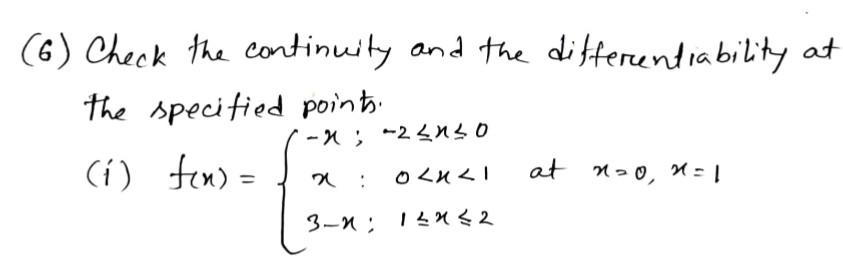 (6) Check the continuity and the differentiability at
the specified points.
-x ; -2 ≤ x ≤ 0
(i) f(x) = { x : 0 < x < 1 at x = 0, x = 1
3-x ; 1 ≤ x ≤ 2